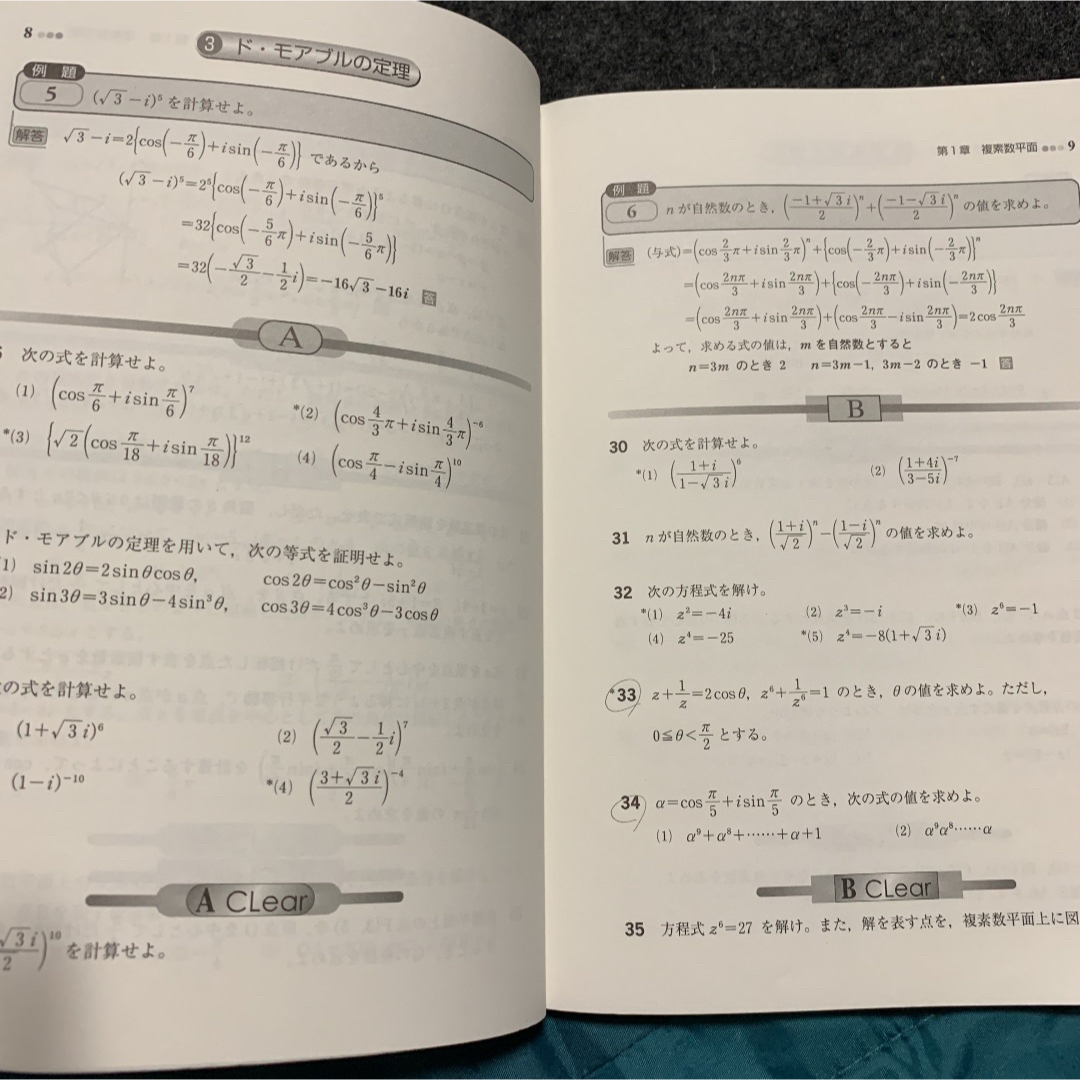 8
3 ド・モアブルの定理
例題
5 (√3−i)⁵ を計算せよ。
解答 √3−i=2{cos(−π/6)+i sin(−π/6)} であるから
(√3−i)⁵=2⁵{cos(−π/6)+i sin(−π/6)}⁵
=32{cos(−5/6π)+i sin(−5/6π)}
=32(−√3/2−1/2i)=−16√3−16i 答
A
次の式を計算せよ。
(1) (cosπ/6+i sinπ/6)⁷
*(2) (cos4/3π+i sin4/3π)⁻⁶
*(3) {√2(cosπ/18+i sinπ/18)}¹²
(4) (cosπ/4−i sinπ/4)¹⁰
ド・モアブルの定理を用いて，次の等式を証明せよ。
1) sin2θ=2sinθcosθ， cos2θ=cos²θ−sin²θ
2) sin3θ=3sinθ−4sin³θ， cos3θ=4cos³θ−3cosθ
の式を計算せよ。
(1+√3i)⁶
(2) (√3/2−1/2i)⁷
(1−i)⁻¹⁰
*(4) (3+√3i/2)⁻⁴
A CLear
√3i/2)¹⁰ を計算せよ。
第1章 複素数平面 9
例題
6 nが自然数のとき，(−1+√3i/2)ⁿ+(−1−√3i/2)ⁿ の値を求めよ。
解答 (与式)=(cos2/3π+i sin2/3π)ⁿ+{cos(−2/3π)+i sin(−2/3π)}ⁿ
=(cos2nπ/3+i sin2nπ/3)+{cos(−2nπ/3)+i sin(−2nπ/3)}
=(cos2nπ/3+i sin2nπ/3)+(cos2nπ/3−i sin2nπ/3)=2cos2nπ/3
よって，求める式の値は，mを自然数とすると
n=3m のとき 2 n=3m−1，3m−2 のとき −1 答
B
30 次の式を計算せよ。
*(1) (1+i/1−√3i)⁶ (2) (1+4i/3−5i)⁻⁷
31 nが自然数のとき，(1+i/√2)ⁿ−(1−i/√2)ⁿ の値を求めよ。
32 次の方程式を解け。
*(1) z²=−4i (2) z³=−i *(3) z⁶=−1
(4) z⁴=−25 *(5) z⁴=−8(1+√3i)
*33 z+1/z=2cosθ，z⁶+1/z⁶=1 のとき，θの値を求めよ。ただし，
0≦θ<π/2 とする。
34 α=cosπ/5+i sinπ/5 のとき，次の式の値を求めよ。
(1) α⁹+α⁸+……+α+1 (2) α⁹α⁸……α
B CLear
35 方程式 z⁶=27 を解け。また，解を表す点を，複素数平面上に図